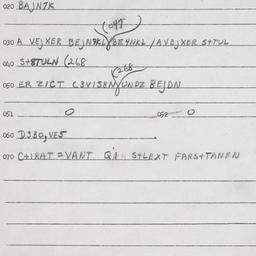 020 BAJN7K
(047
030 A VEJXER BEJN7KL/BE4NKL /AVEJXER S+TUL
040 S+8TULN (268
(268
050 ER ZICT C3VISBN/UNDZ BEJDN
051 O 052 O
060 D3BO,VES .
070 C+1RAT = VANT S+LEXT FARS+TANEN